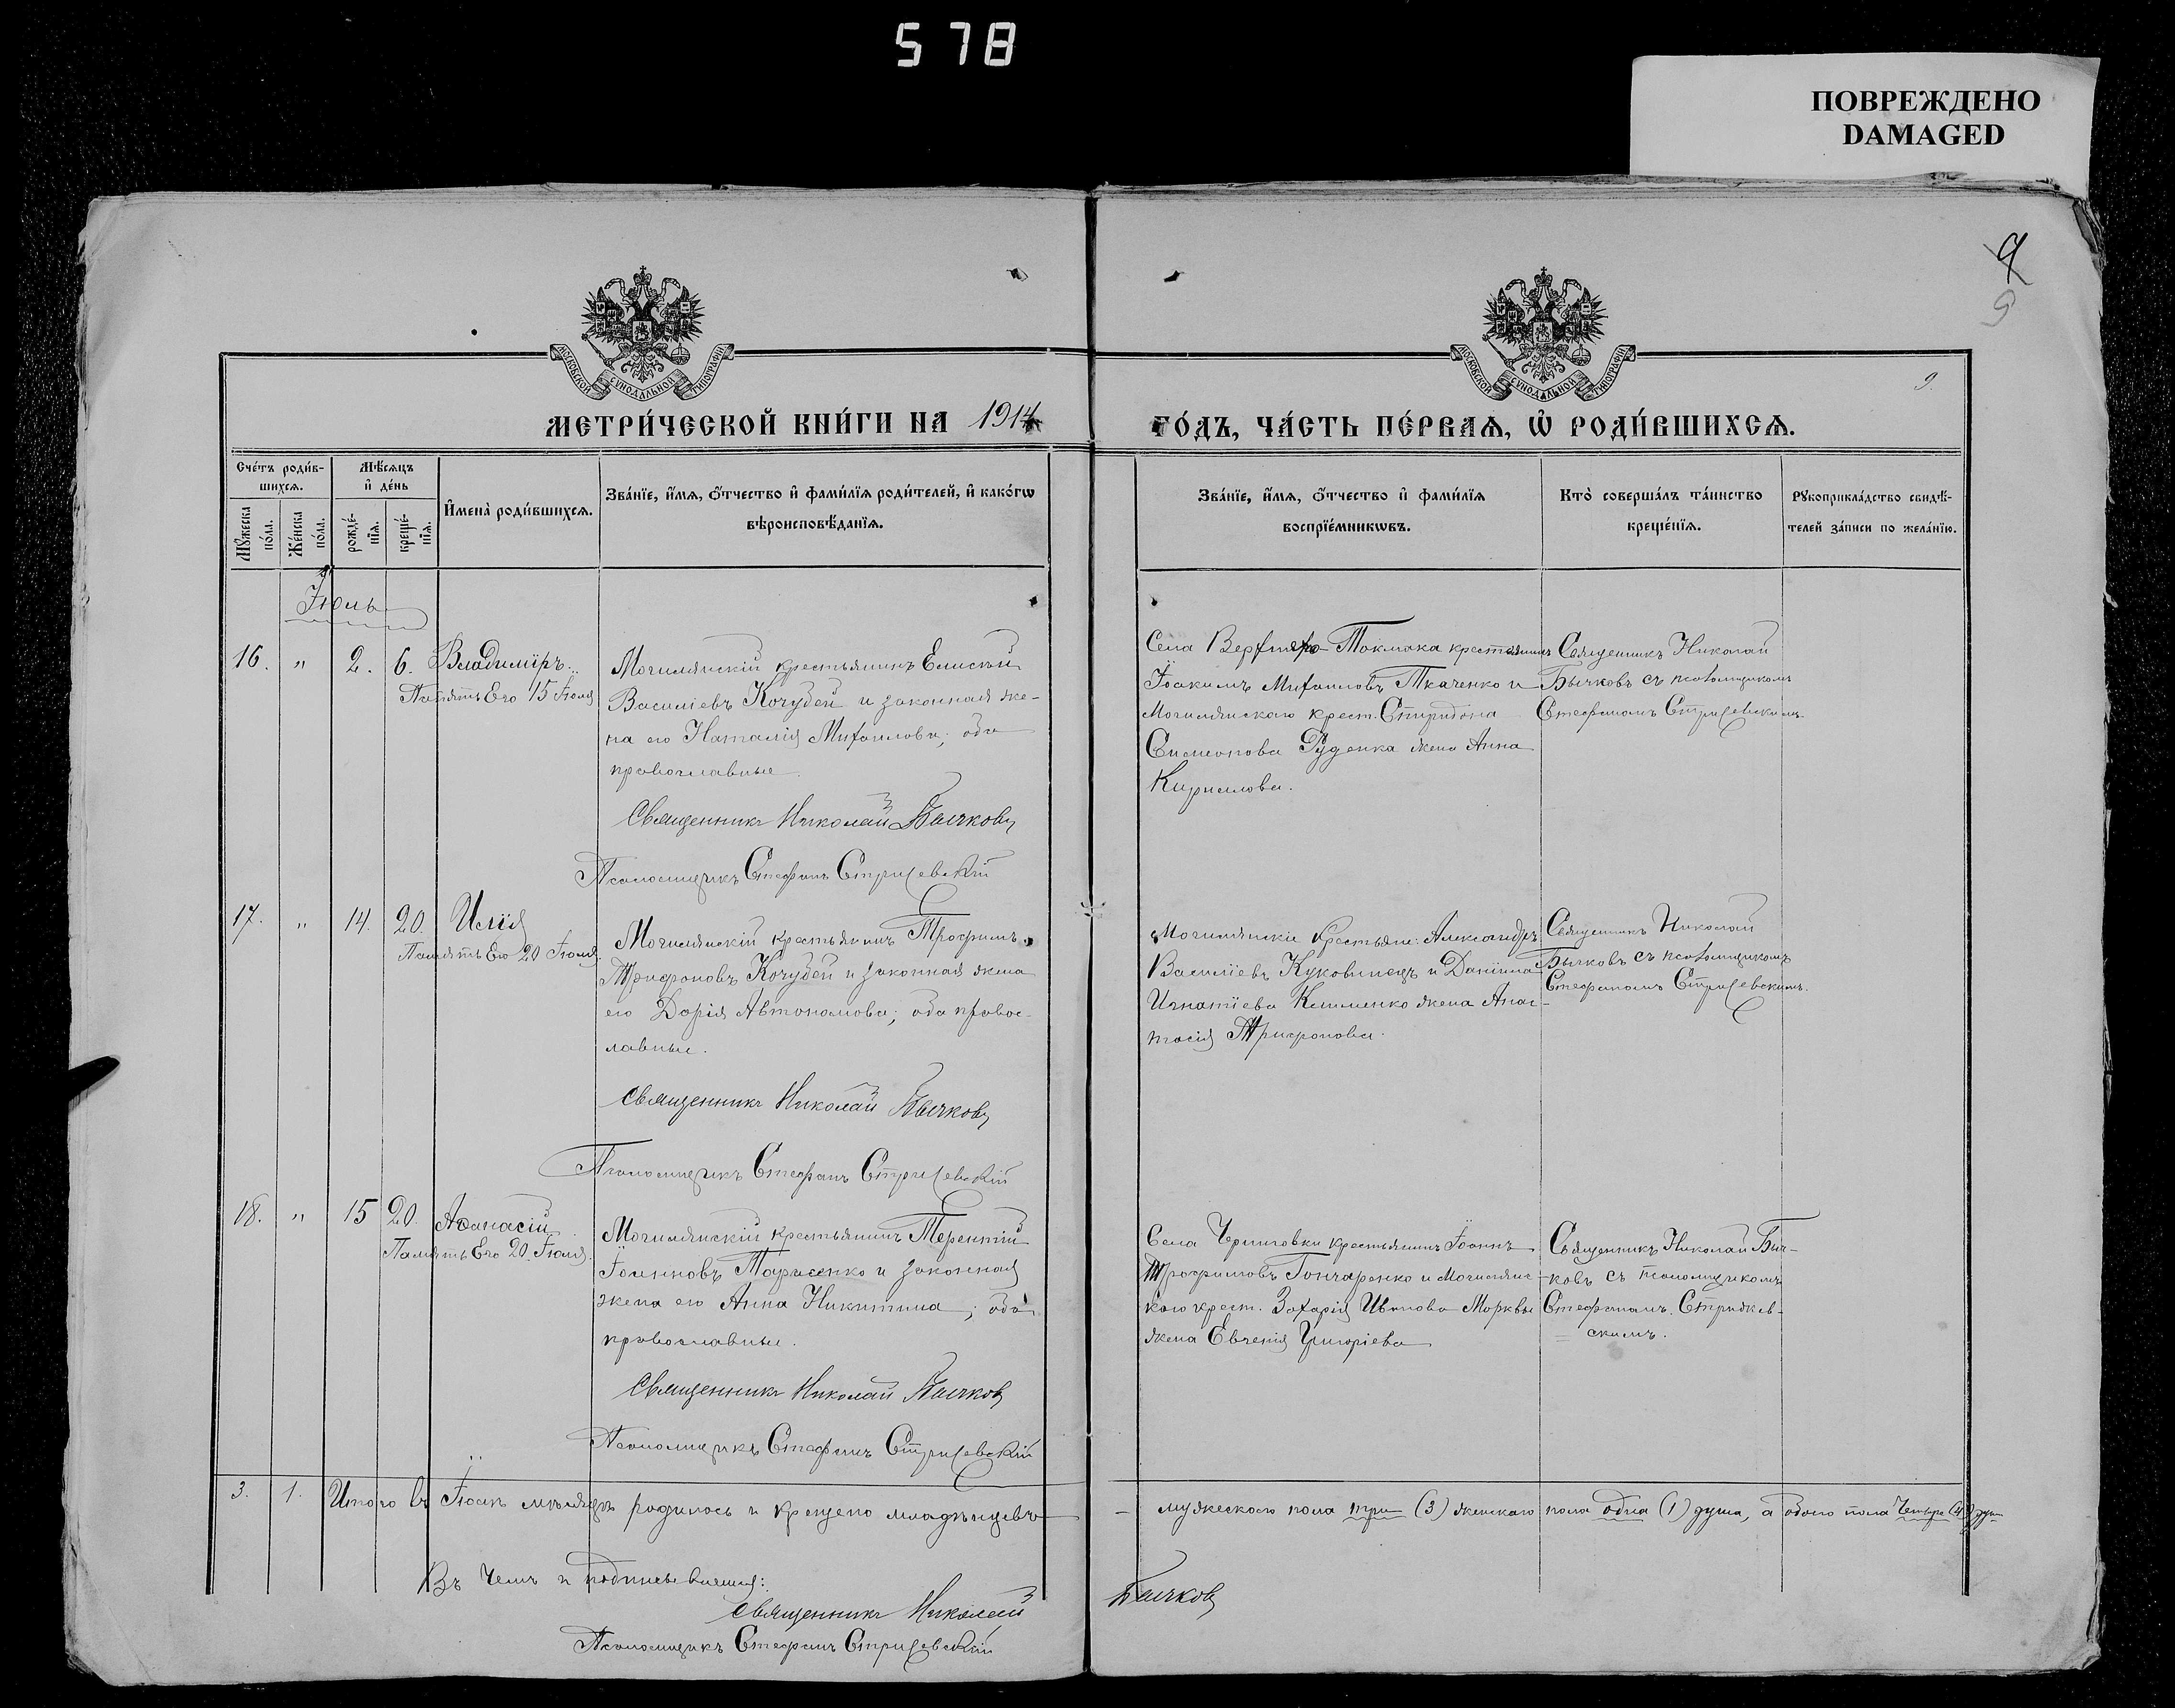 578
ПОВРЕЖДЕНО
DAMAGED
9
9
9.
МОСКОВСКОЙ СУНОДАЛЬНОЙ ТИПОГРАФІИ
МОСКОВСКОЙ СУНОДАЛЬНОЙ ТИПОГРАФІИ
МЕТРИ́ЧЕСКОЙ КНИ́ГИ НА 1914 ГО́ДЪ, ЧА́СТЬ ПЕ́РВАѦ, Ѡ҆ РОДИ́ВШИХСѦ.
Сче́тъ роди́в-
шихсѧ.
Мѣ́сѧцъ
и҆ де́нь
Мꙋ́жеска
по́ла.
Же́нска
по́ла.
рожде́-
нїѧ.
креще́-
нїѧ.
И҆мена̀ роди́вшихсѧ.
Зва́нїе, и҆́мѧ, ѻ҆́тчество и҆ фами́лїѧ роди́телей, и҆ како́гѡ
вѣроисповѣ́данїѧ.
Зва́нїе, и҆́мѧ, ѻ҆́тчество и҆ фами́лїѧ
воспрїе́мникѡвъ.
Кто̀ соверша́лъ та́инство
креще́нїѧ.
Рꙋкоприкла́дство свидѣ́-
телей за́писи по жела́нїю.
Іюль
16. " 2. 6. Владиміръ.
Память Его 15 Іюля
Могилянскій крестьянинъ Елисей
Василіевъ Кочубей и законная же-
на его Наталія Михаилова; оба
православные.
Священникъ Николай Бычковъ
Псаломщикъ Стефанъ Стрижевскій
Села Верхняго-Токмака крестьянинъ
Іоакимъ Михаиловъ Ткаченко и
Могилянскаго крест. Спиридона
Симеонова Руденка жена Анна
Кириллова.
Священникъ Николай
Бычковъ съ псаломщикомъ
Стефаномъ Стрижевскимъ.
17. " 14. 20. Илія
Память Его 20 Іюля.
Могилянскій крестьянинъ Трофимъ
Трифоновъ Кочубей и законная жена
его Дарія Автономова; оба правос-
лавные.
Священникъ Николай Бычковъ
Псаломщикъ Стефанъ Стрижевскій
Могилянскіе крестьяне: Александръ
Василіевъ Куковинецъ и Даніила
Игнатіева Клименко жена Анас-
тасія Трифонова.
Священникъ Николай
Бычковъ съ псаломщикомъ
Стефаномъ Стрижевскимъ.
18. " 15 20. Аѳанасій
Память Его 20 Іюля.
Могилянскій крестьянинъ Терентій
Іоанновъ Тарасенко и законная
жена его Анна Никитина; оба
православные.
Священникъ Николай Бычковъ
Псаломщикъ Стефанъ Стрижевскій
Села Черниговки крестьянинъ Іоаннъ
Трофимовъ Гончаренко и Могилянс-
каго крест. Захарія Иванова Морквы
жена Евгенія Григоріева
Священникъ Николай Быч-
ковъ съ псаломщикомъ
Стефаномъ Стрижев-
скимъ.
3. 1. Итого въ Іюлѣ мѣсяцѣ родилось и крещено младенцевъ — мужескаго пола три (3) женскаго пола одна (1) душа, а обоего пола четыре (4) души
Въ чемъ и подписываемся:
Священникъ Николай Бычковъ
Псаломщикъ Стефанъ Стрижевскій